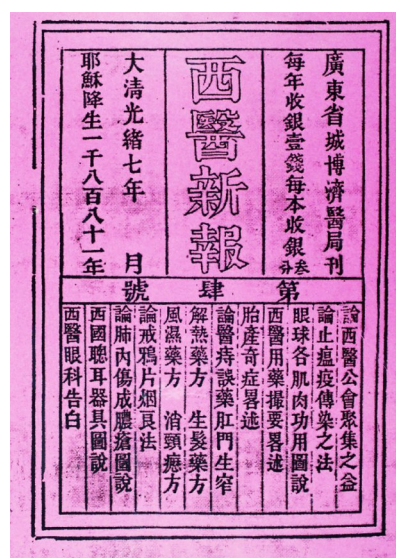 廣東省城博濟醫局刊
每年收銀壹錢每本收銀叁分
西醫新報
大清光緒七年 月
耶穌降生一千八百八十一年
第肆號
論西醫公會聚集之益
論止瘟疫傳染之法
眼球各肌肉功用圖說
西醫用藥撮要畧述
胎產奇症畧述
論醫痔誤藥肛門生窄
解熱藥方 生髮藥方
風濕藥方 消頸癧方
論戒鴉片烟良法
論肺內傷成膿瘡圖說
西國聰耳器具圖說
西醫眼科告白